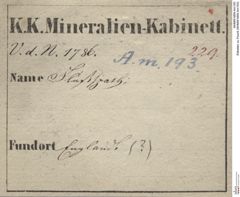 K.K. Mineralien-Kabinett.
V. d. N. 1786. A.m. 193. 229.
Name Flußspath.
Fundort England (?)